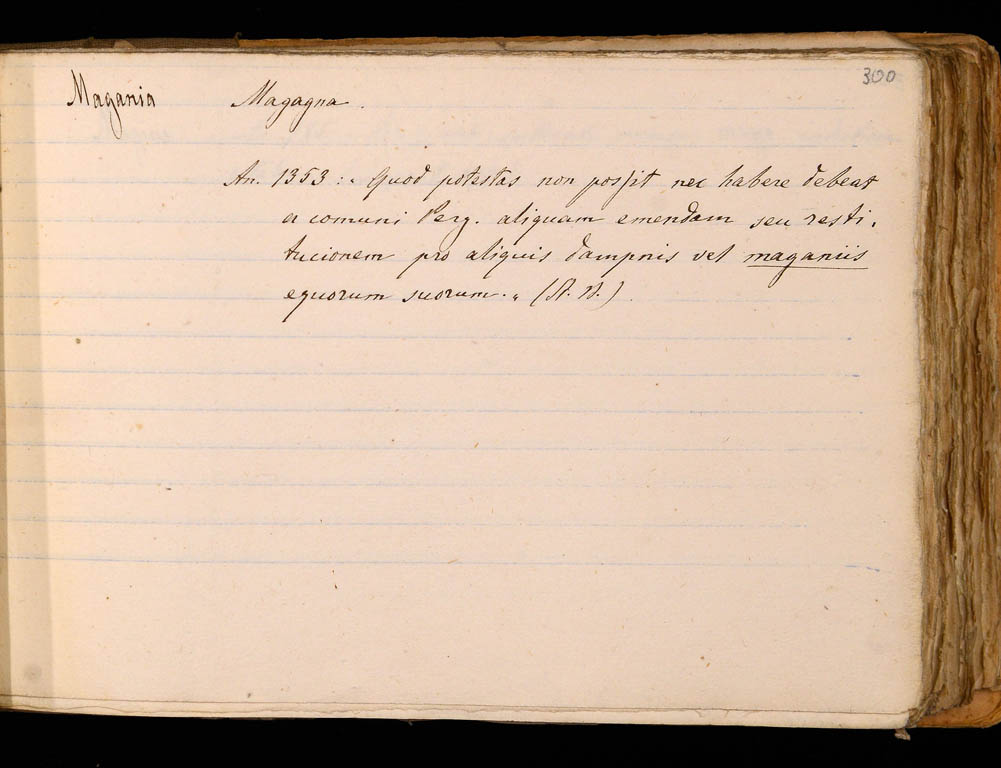 300
Magania Magagna.
An. 1353: „ Quod potestas non possit nec habere debeat
a comuni Perg. aliquam emendam seu resti-
tucionem pro aliquis dampnis vel maganiis
equorum suorum. „ (A. B.)